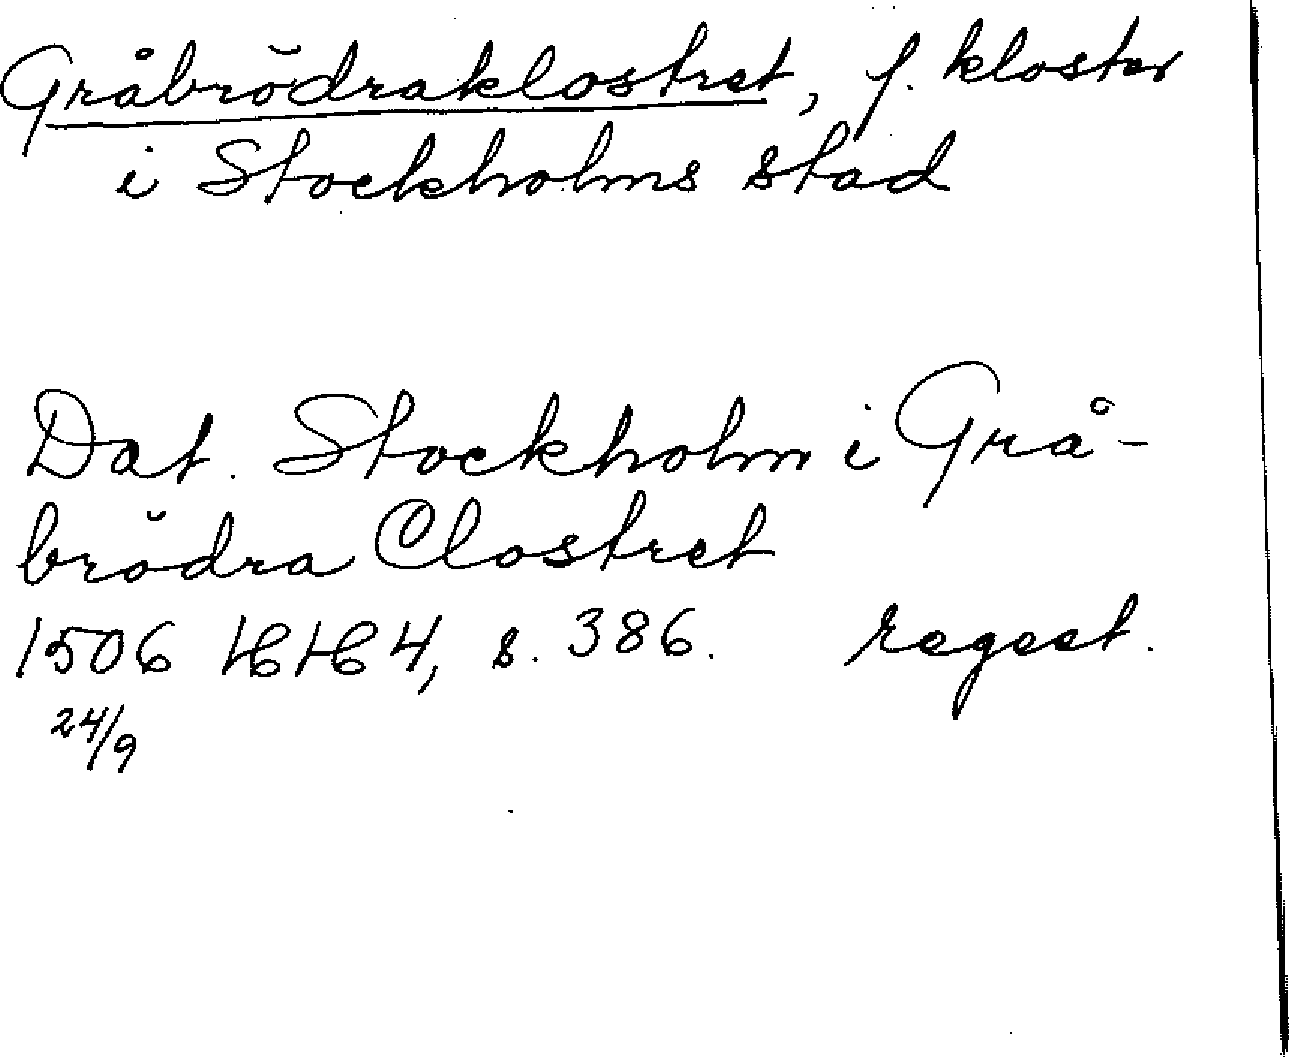 Gråbrödraklostret, f. kloster
i Stockholms stad
Dat. Stockholm i Grå-
brödra Clostret
1506 HH 4, s. 386. regest.
24/9